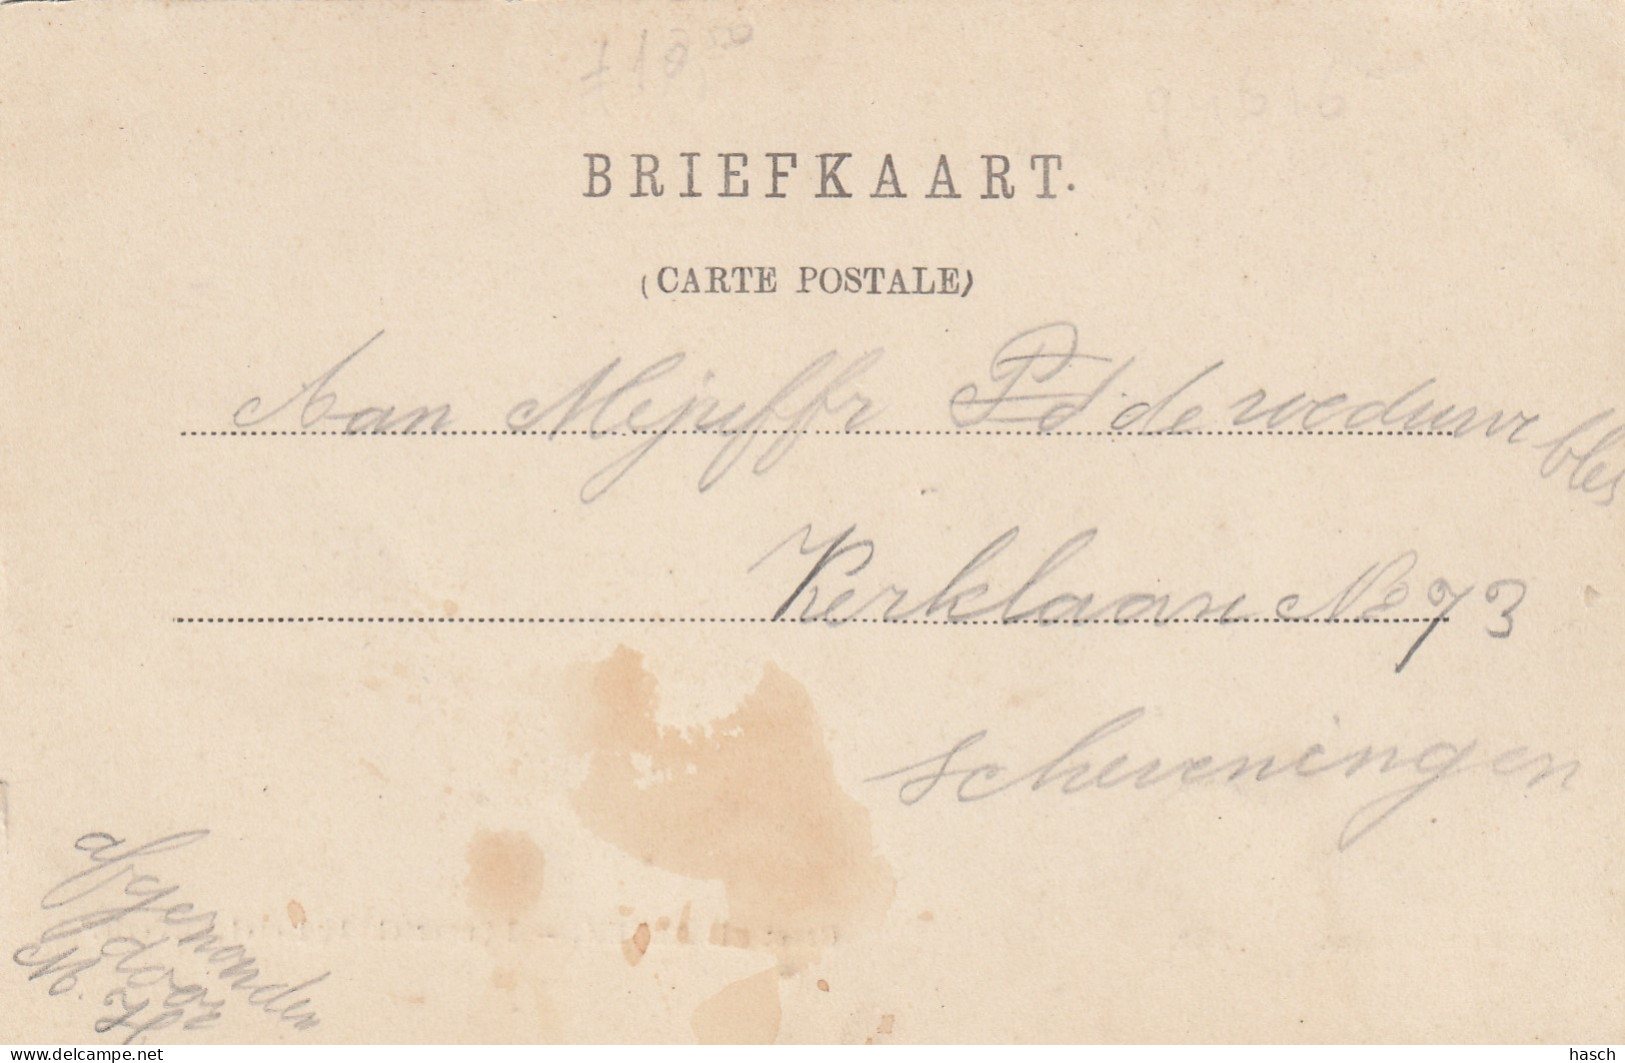 BRIEFKAART.
(CARTE POSTALE)
Aan Mejuffr Pd de weduwe bles
Kerklaan No 73
scheveningen
afgezonden
door
M.
www.delcampe.net
hasch